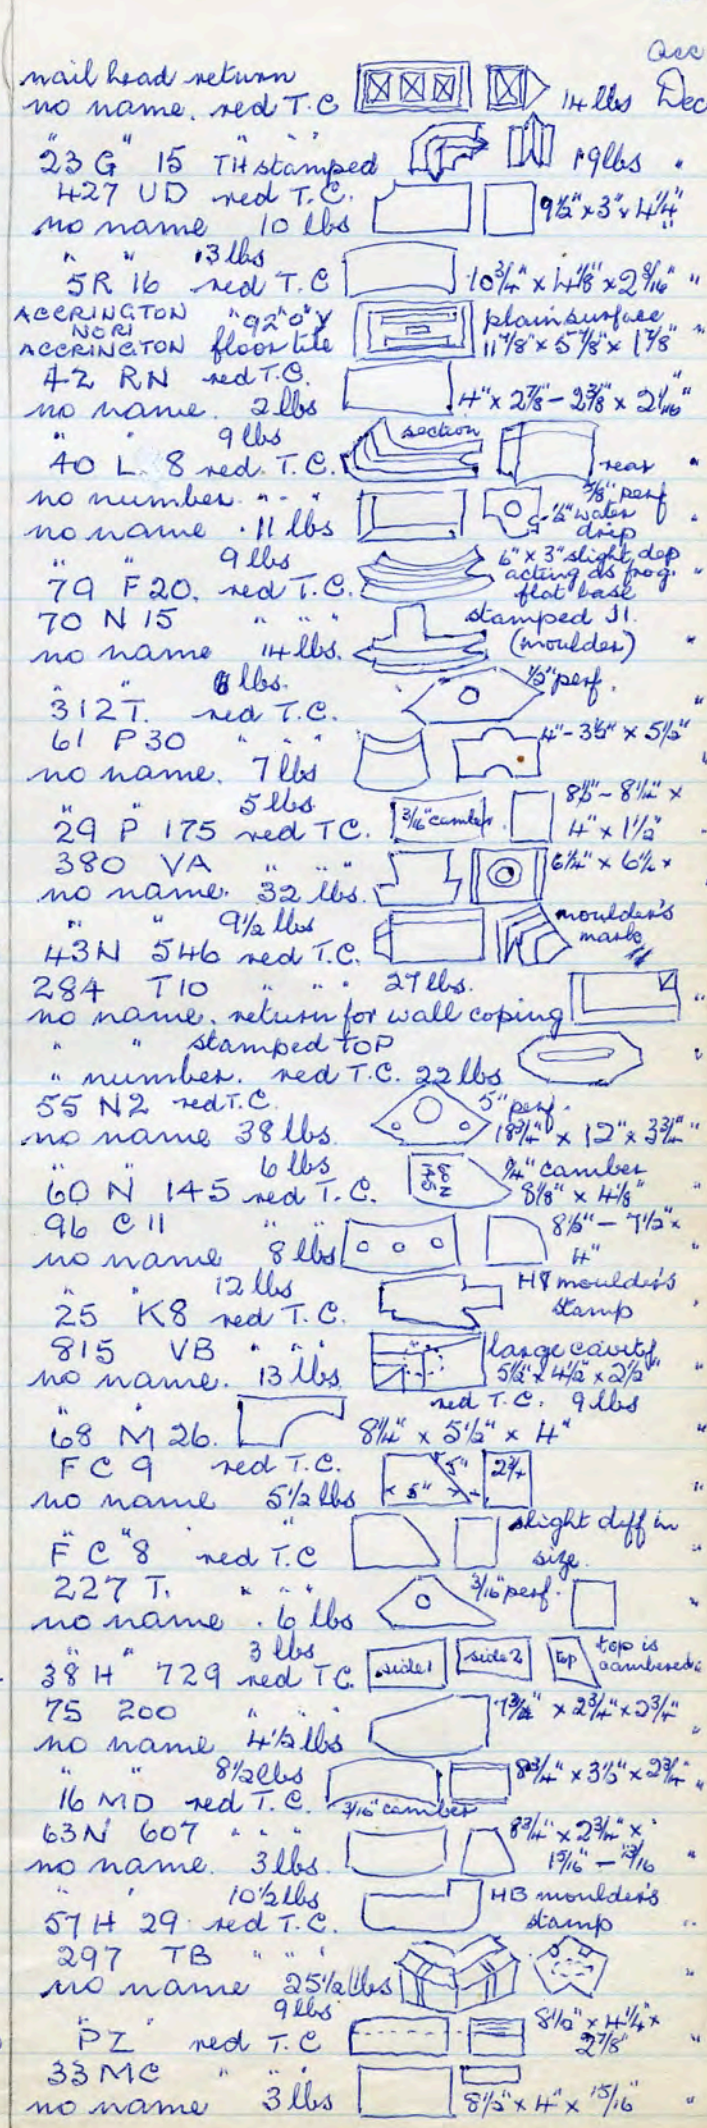 Acc
nail head return
no name. red T.C 14 lbs Dec
" " " " "
23 G 15 TH stamped 19 lbs "
427 UD red T.C.
no name 10 lbs 9½" x 3" x 4¼"
" " 13 lbs "
5R 16 red T.C 10¾" x 4⅛" x 2 9/16" "
ACCRINGTON "92"0"Y plain surface
NORI
ACCRINGTON floor tile 11⅞" x 5⅞" x 1⅞" "
42 RN red T.C. "
no name. 2 lbs 4" x 2⅞ - 2⅜" x 2 1/16"
" " 9 lbs section
40 L. 8 red. T.C. rear "
no number. " - " ⅜" perf
no name . 11 lbs ½" water drip "
" " 9 lbs 6" x 3" slight dep
79 F 20. red T.C. acting as frog. "
flat base
70 N 15 " " " stamped J1.
no name 14 lbs. (moulder) "
" " 6 lbs. ½" perf.
312 T. red T.C. "
61 P 30 " " " 4" - 3½" x 5½"
no name. 7 lbs "
" " 5 lbs 8½" - 8¼" x
29 P 175 red TC. 3/16" camber. 4" x 1½"
380 VA " " " 6¼" x 6½ x
no name. 32 lbs.
" " 9½ lbs moulder's
43N 546 red T.C. marks
284 T10 " " " 27 lbs.
no name. return for wall coping "
" " stamped TOP "
" number. red T.C. 22 lbs
55 N2 red T.C. 5" perf.
no name 38 lbs. 18¾" x 12" x 3¾" "
" " 6 lbs 60 N 145 ¼" camber
60 N 145 red T.C. 8⅛" x 4⅛" "
96 C 11 " " 8½" - 7½" x
no name 8 lbs 4" "
" " 12 lbs H8 moulder's
25 K8 red T.C. stamp "
815 VB " " " large cavity
no name. 13 lbs. 5½" x 4½" x 2½" "
" " red T.C. 9 lbs
68 M 26. 8¼" x 5½" x 4" "
F C 9 red T.C. 5" 2¾
no name 5½ lbs 5" "
" " " slight diff in
F C 8 red T.C size. "
227 T. " " " 3/16" perf.
no name . 6 lbs "
" " 3 lbs side 1 side 2 top top is
38 H 729 red TC. cambered "
75 200 " " " 7¾" x 2¾" x 2¾"
no name 4½ lbs "
" " 8½ lbs 8¾" x 3½" x 2¾" "
16 MD red T.C. 3/16" camber
63N 607 " " " 8¾" x 2¾" x
no name. 3 lbs. 15/16" - 13/16 "
" " 10½ lbs HB moulder's
57 H 29 red T.C. stamp "
297 TB " " "
no name 25½ lbs "
9 lbs 8½" x 4¼" x
"PZ" red T.C 2⅞" "
33 MC " " "
no name 3 lbs 8½" x 4" x 15/16" "